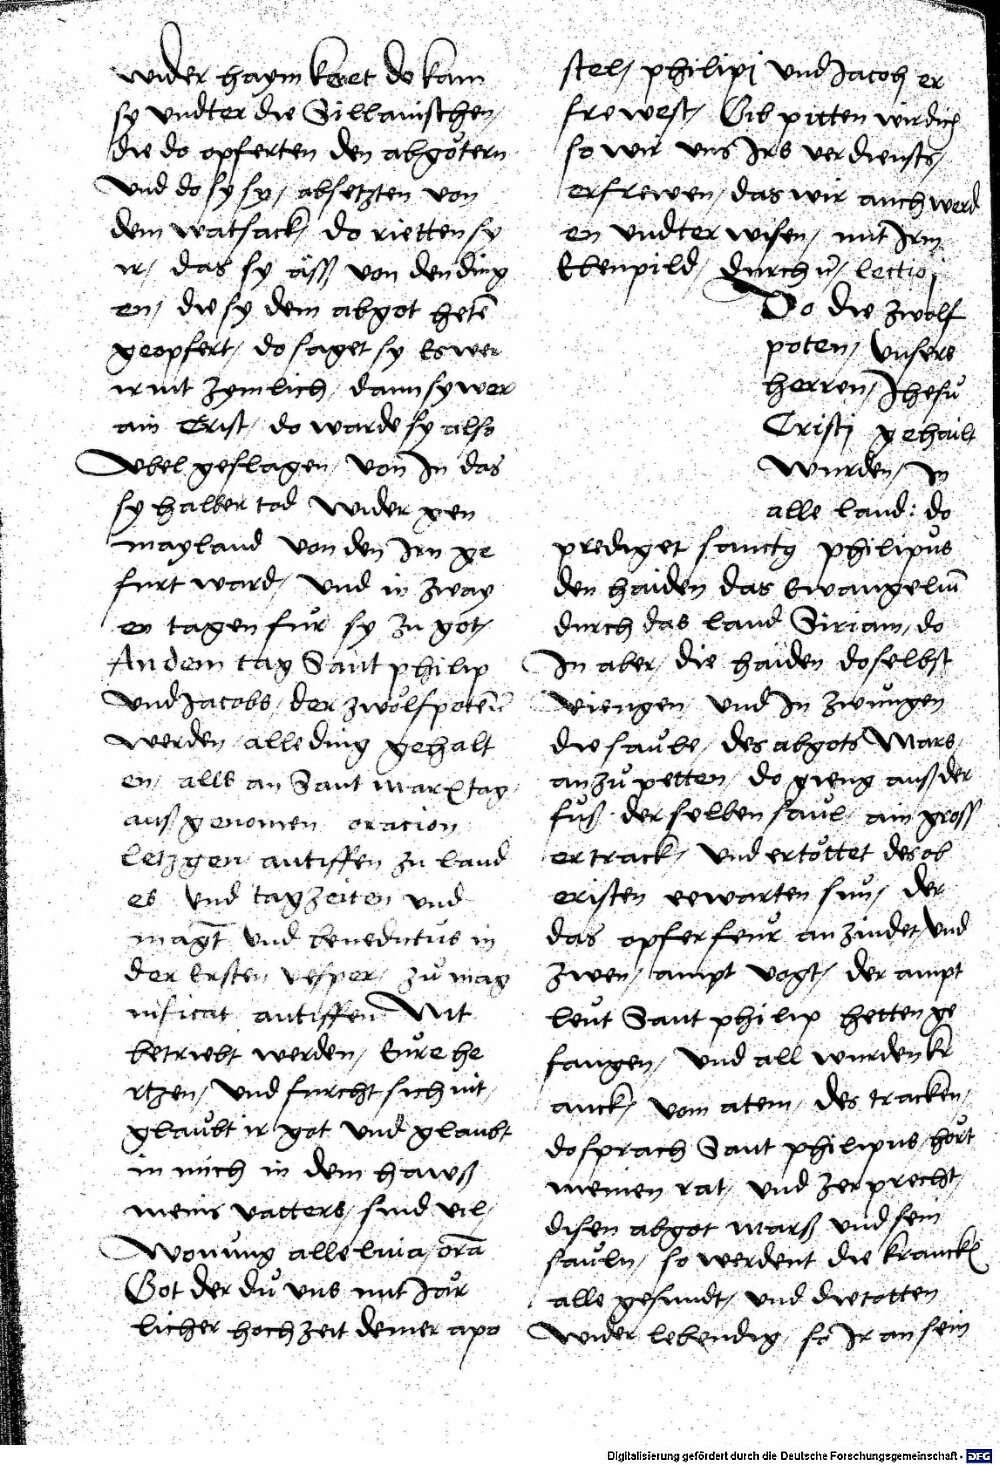 wider haym keret do kam
sy vndter die Sillanischen /
die do opferten den abgötern
vnd do sy sy / absetzten von
dem watsack / do rietten sy
ir / das sy äss von den ding
en / die sy dem abgot hetē
geopfert / do saget sy Es wer
ir nit zymlich / dann sy wer
ain Crist / do warde sy also
vbel geslagen / von In das
sy halber tod wider gen
mayland von den Irn ge
furt ward / vnd in zway
en tagen für sy zu got /
An dem tag Sant philip
vnd Jacobs / der zwölfpotēn
werden alle ding gehalt
en / alls an Sant marx tag /
ausgenomen oracion
letzgen antiffen zu laud
es vnd tagzeiten vnd
magt̄ vnd benedictus in
der Ersten vesper / zu mag
nificat antiffen Nit
betriebt werden / Eure he
rtzen / vnd furcht sich nit /
glaubt ir got vnd glaubt
in mich in dem hawß
meins vatters / sind vil /
wonung alleluia / orā
Got der du vns mit Jär
licher hochzeit deiner apo
stel / philipi vnd Jacob er
frewest / Gib pitten wir dich
so wir vns Irs verdiensts /
erfrewen / das wir auch werd
en vndter wisen / mit Irm
Ebenpild / durch ū / lectio j
Do die zwölf
poten / vnsers
herren / Jhesu
Cristi gehailt
wurden / In
alle land : do
prediget sanctg philipus
den haiden das Ewangeliū
durch das land Siriam / do
In aber / die haiden doselbst
viengen vnd In zwungen
die saule / des abgots Mars /
anzupetten / do gieng auß der
fuß der selben saul ain gross
er track / vnd ertöttet des ob
eristen eewarten sun / der
das opferfeur anzindet / vnd
zwen / ampt vogt / der ampt
leut Sant philip hetten ge
fangen / vnd all wurden kr
anck / vom atem / des tracken /
do sprach Sant philipus / hört
meinen rat / vnd zerprecht /
disen abgot marß vnd sein
sauln / so werdent die krancken
alle gesundt / vnd die totten
wider lebendig / so Ir an sein
Digitalisierung gefördert durch die Deutsche Forschungsgemeinschaft - DFG